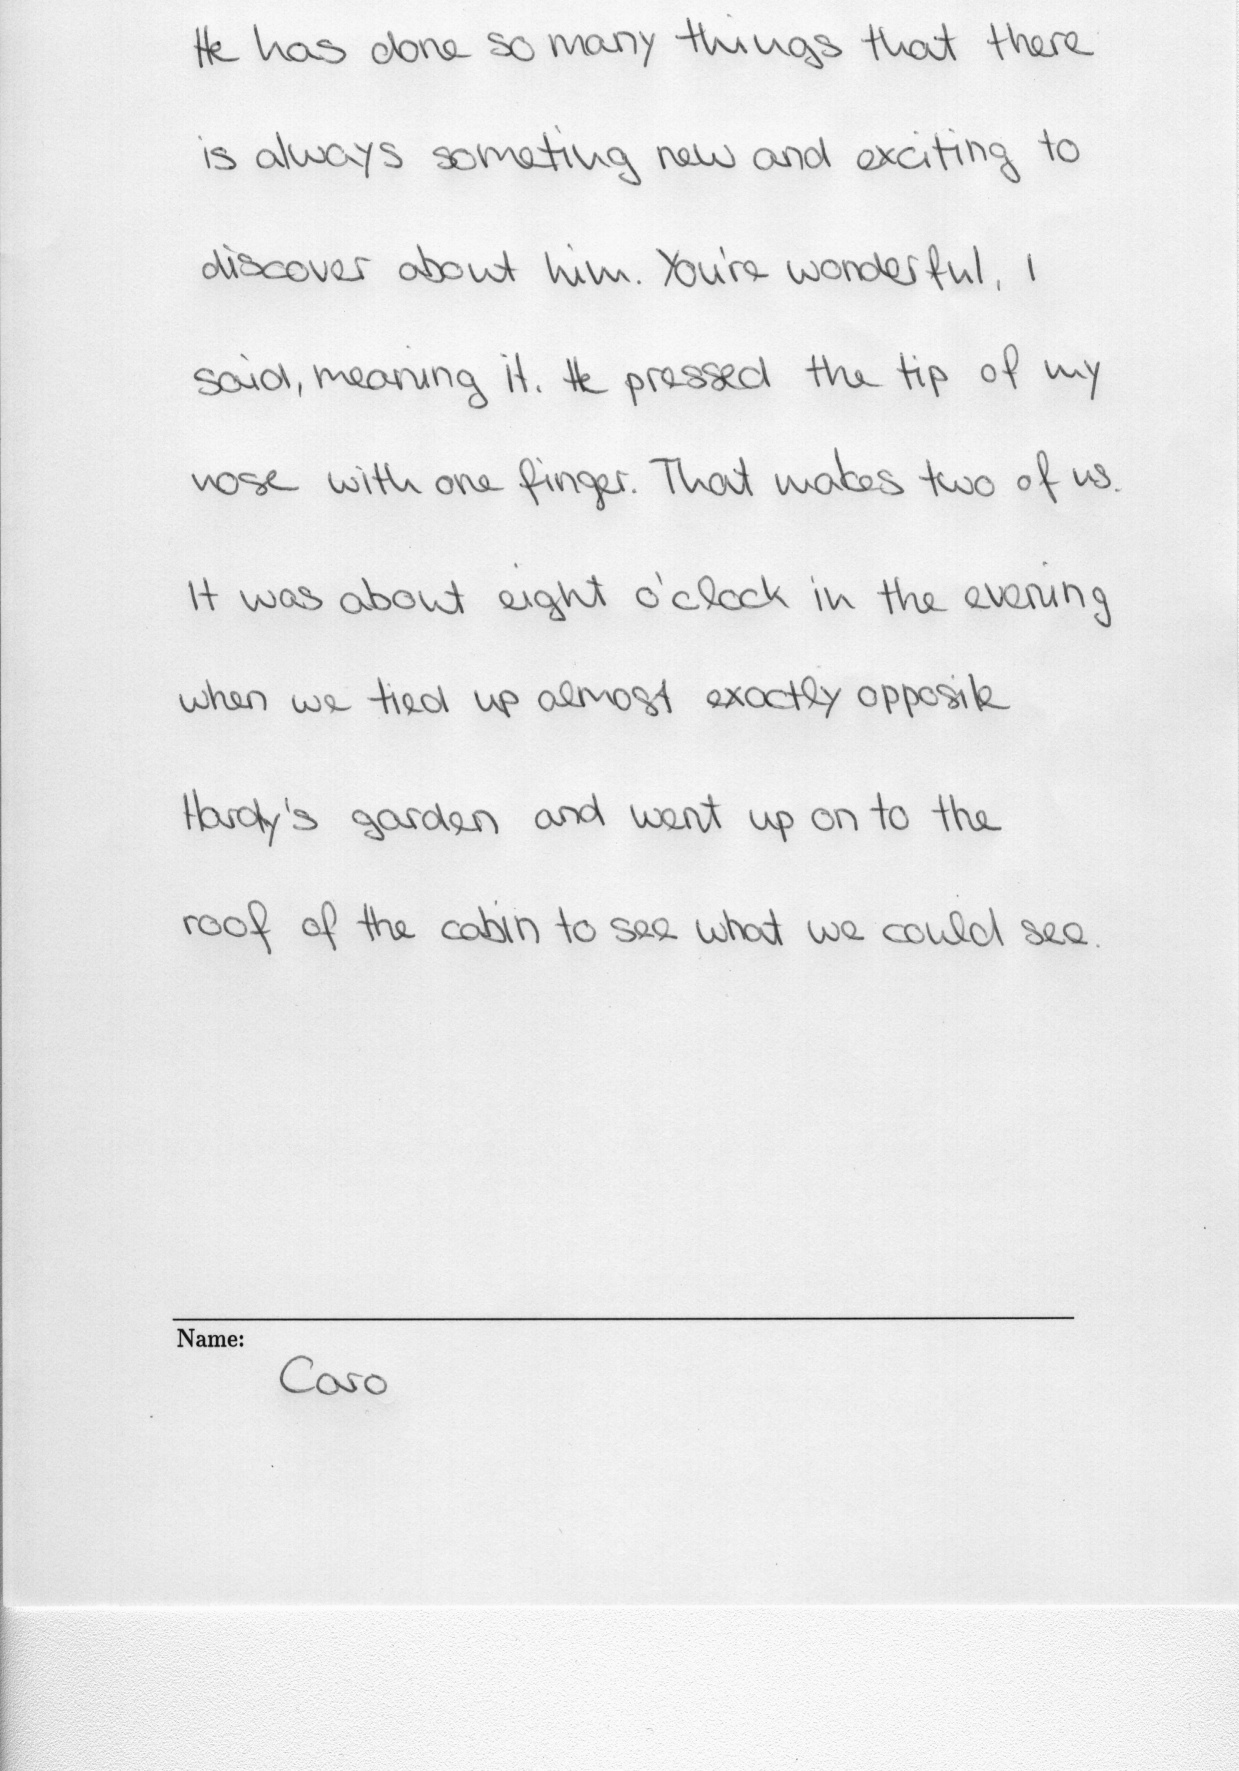 He has done so many things that there
is always someting new and exciting to
discover about him. You're wonderful, I
said, meaning it. He pressed the tip of my
nose with one finger. That makes two of us.
It was about eight o'clock in the evening
when we tied up almost exactly opposite
Hardy's garden and went up on to the
roof of the cabin to see what we could see.
Name:
Caro